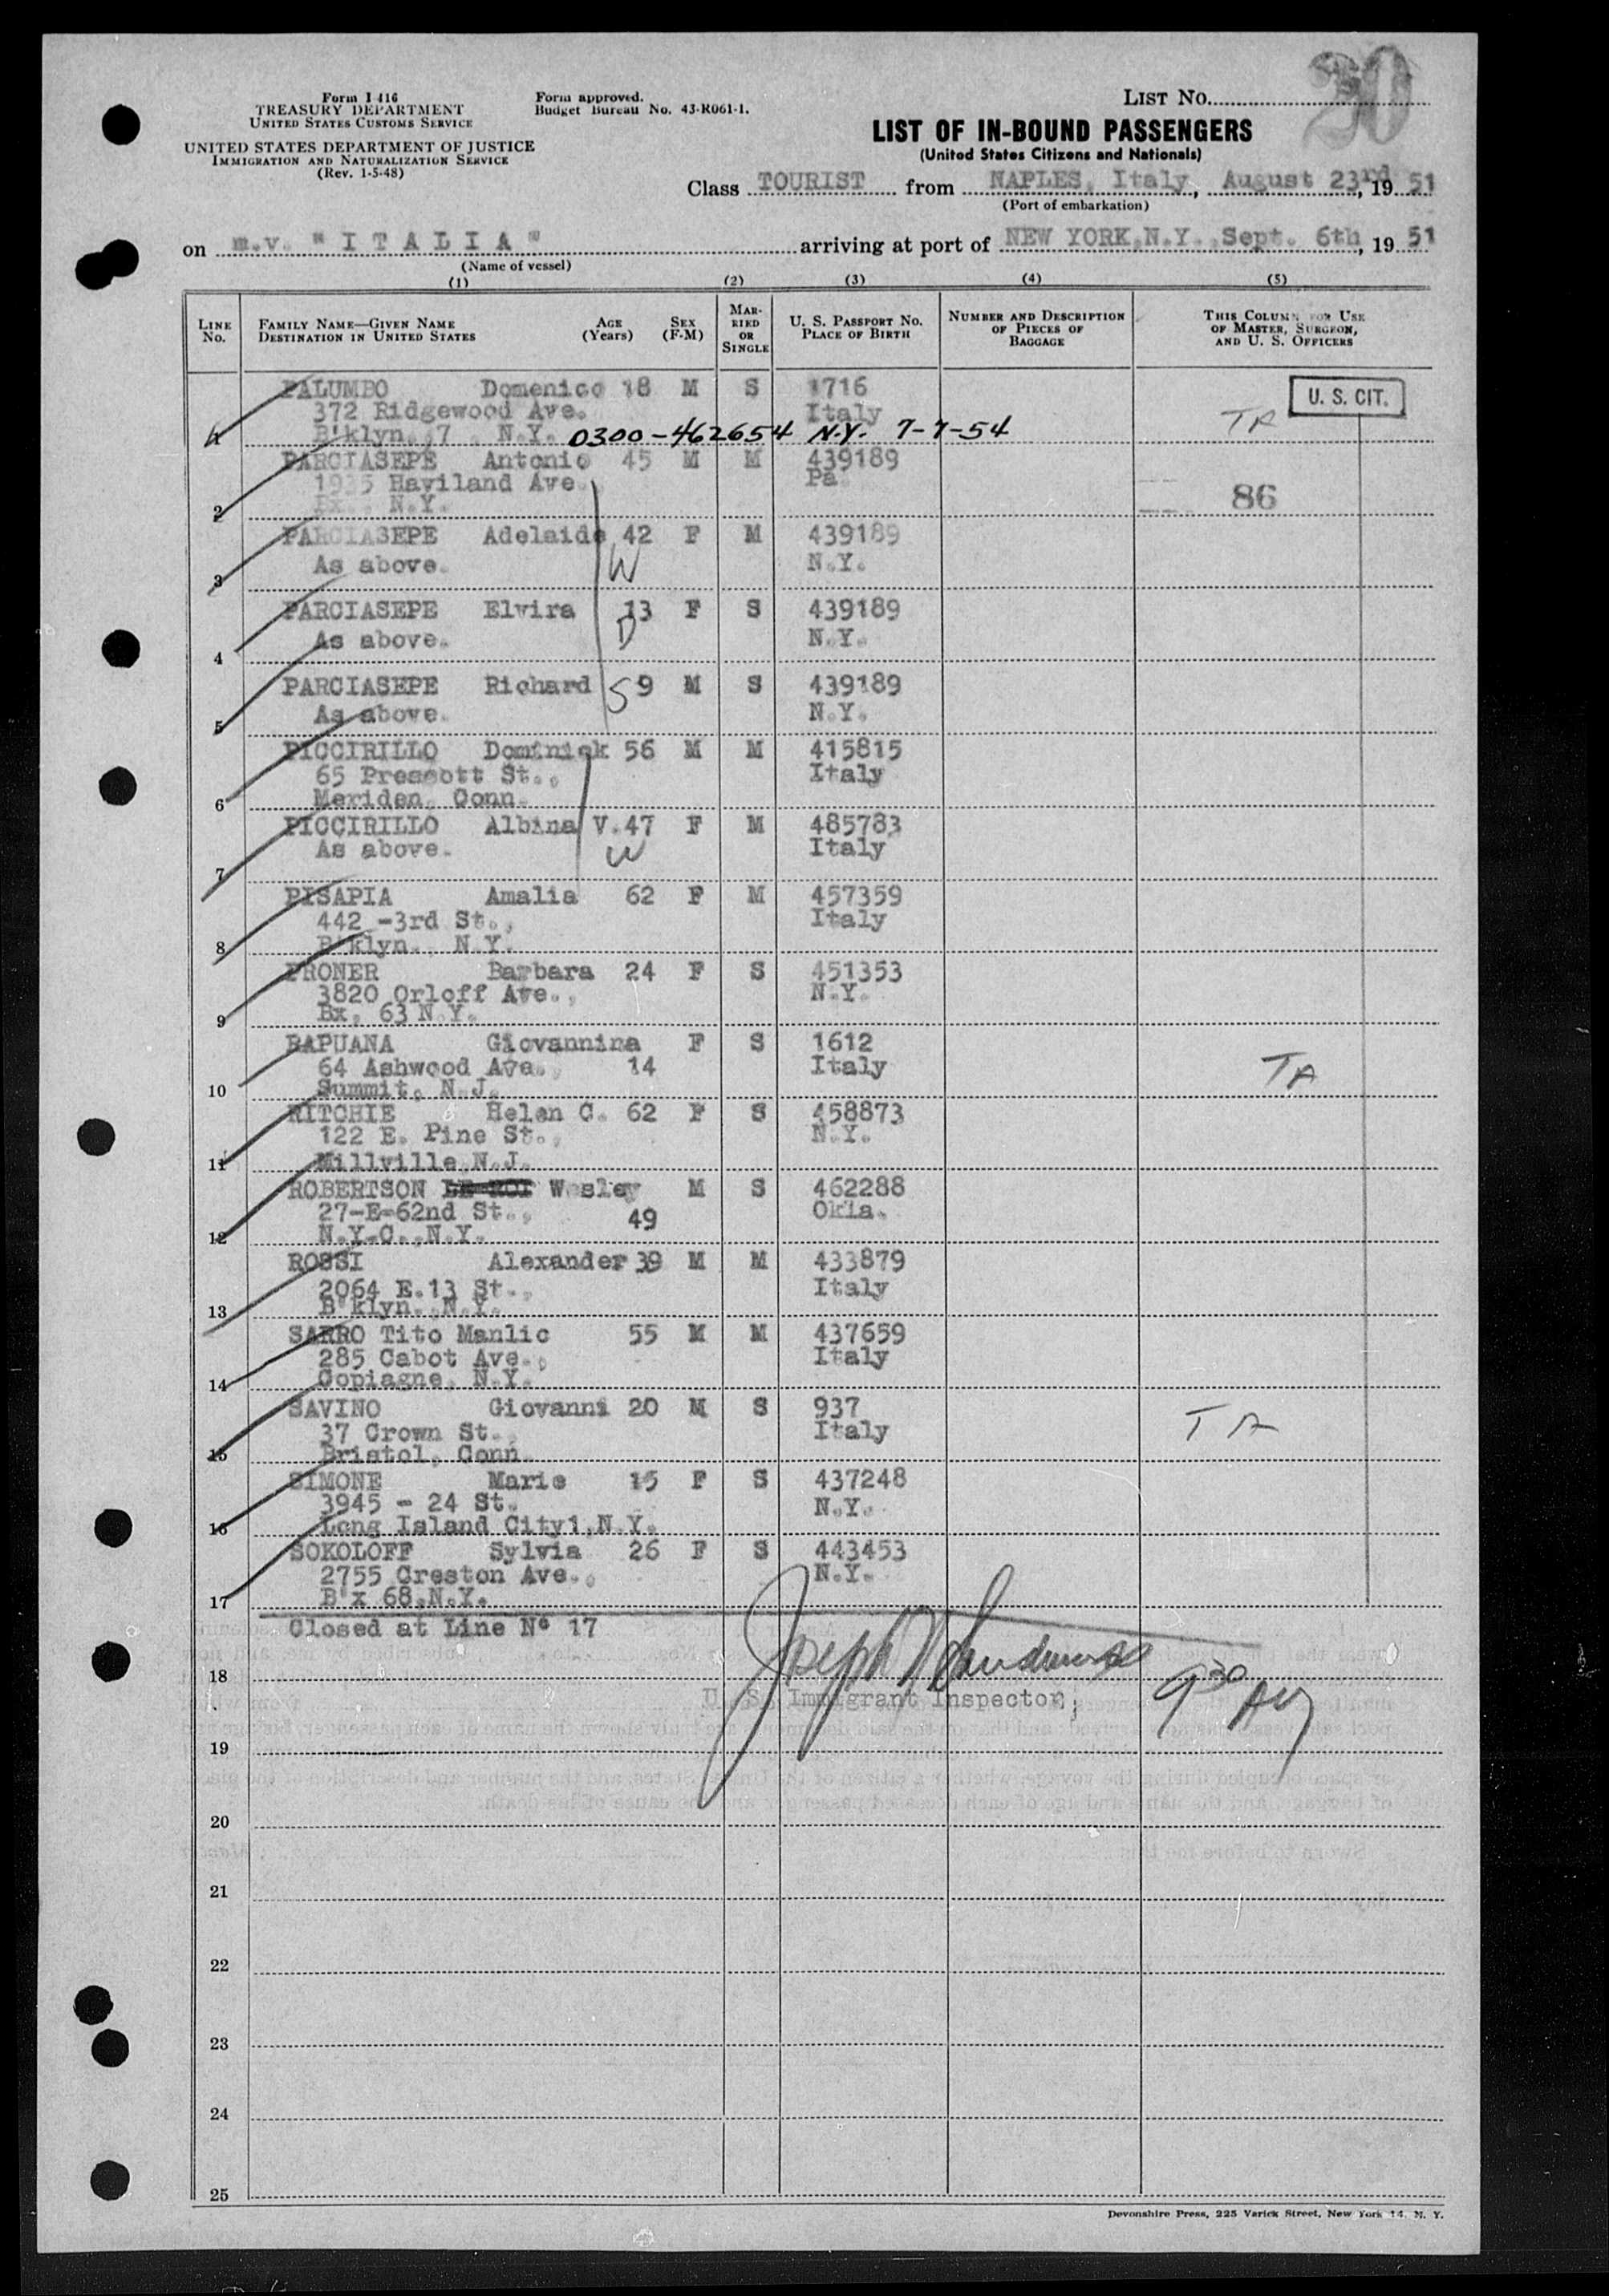 Form I 416
TREASURY DEPARTMENT
UNITED STATES CUSTOMS SERVICE
UNITED STATES DEPARTMENT OF JUSTICE
IMMIGRATION AND NATURALIZATION SERVICE
(Rev. 1-5-48)
Form approved.
Budget Bureau No. 43-R061-1.
LIST NO.
LIST OF IN-BOUND PASSENGERS
(United States Citizens and Nationals)
Class TOURIST from NAPLES, Italy, August 23rd, 19 51
(Port of embarkation)
on m.v. "ITALIA" arriving at port of NEW YORK, N.Y. Sept. 6th, 19 51
(Name of vessel)
(1) (2) (3) (4) (5)
LINE NO. FAMILY NAME—GIVEN NAME DESTINATION IN UNITED STATES AGE (Years) SEX (F-M) MARRIED OR SINGLE U. S. PASSPORT NO. PLACE OF BIRTH NUMBER AND DESCRIPTION OF PIECES OF BAGGAGE THIS COLUMN FOR USE OF MASTER, SURGEON, AND U. S. OFFICERS
PALUMBO Domenico 18 M S 1716 U. S. CIT.
372 Ridgewood Ave. Italy
B'klyn. 7 N.Y. 0300-462654 N.Y. 7-7-54
PARCIASEPE Antonio 45 M M 439189
1935 Haviland Ave. Pa
2 Bx. N.Y. 86
PARCIASEPE Adelaide 42 F M 439189
3 As above. W N.Y.
PARCIASEPE Elvira 13 F S 439189
4 As above. D N.Y.
PARCIASEPE Richard S 9 M S 439189
5 As above. N.Y.
PICCIRILLO Dominick 56 M M 415815
65 Prescott St., Italy
6 Meriden, Conn.
PICCIRILLO Albina V. 47 F M 485783
As above. W Italy
7
PISAPIA Amalia 62 F M 457359
442 -3rd St., Italy
8 B'klyn., N.Y.
PRONER Barbara 24 F S 451353
3820 Orloff Ave., N.Y.
9 Bx. 63 N.Y.
RAPUANA Giovannina F S 1612
64 Ashwood Ave., 14 Italy TA
10 Summit, N.J.
RITCHIE Helen C. 62 F S 458873
122 E. Pine St., N.Y.
11 Millville, N.J.
ROBERTSON Wesley M S 462288
27-E-62nd St., 49 Okla.
12 N.Y.C., N.Y.
ROSSI Alexander 39 M M 433879
2064 E.13 St., Italy
13 B'klyn. N.Y.
SARRO Tito Manlio 55 M M 437659
285 Cabot Ave., Italy
14 Copiague, N.Y.
SAVINO Giovanni 20 M S 937 TA
37 Crown St. Italy
15 Bristol, Conn.
SIMONE Marie 15 F S 437248
3945 - 24 St. N.Y.
16 Long Island City 1, N.Y.
SOKOLOFF Sylvia 26 F S 443453
2755 Creston Ave., N.Y.
17 B'x 68, N.Y.
Closed at Line No 17
18
U. S. Immigrant Inspector,
19
20
21
22
23
24
25
Devonshire Press, 225 Varick Street, New York 14, N. Y.